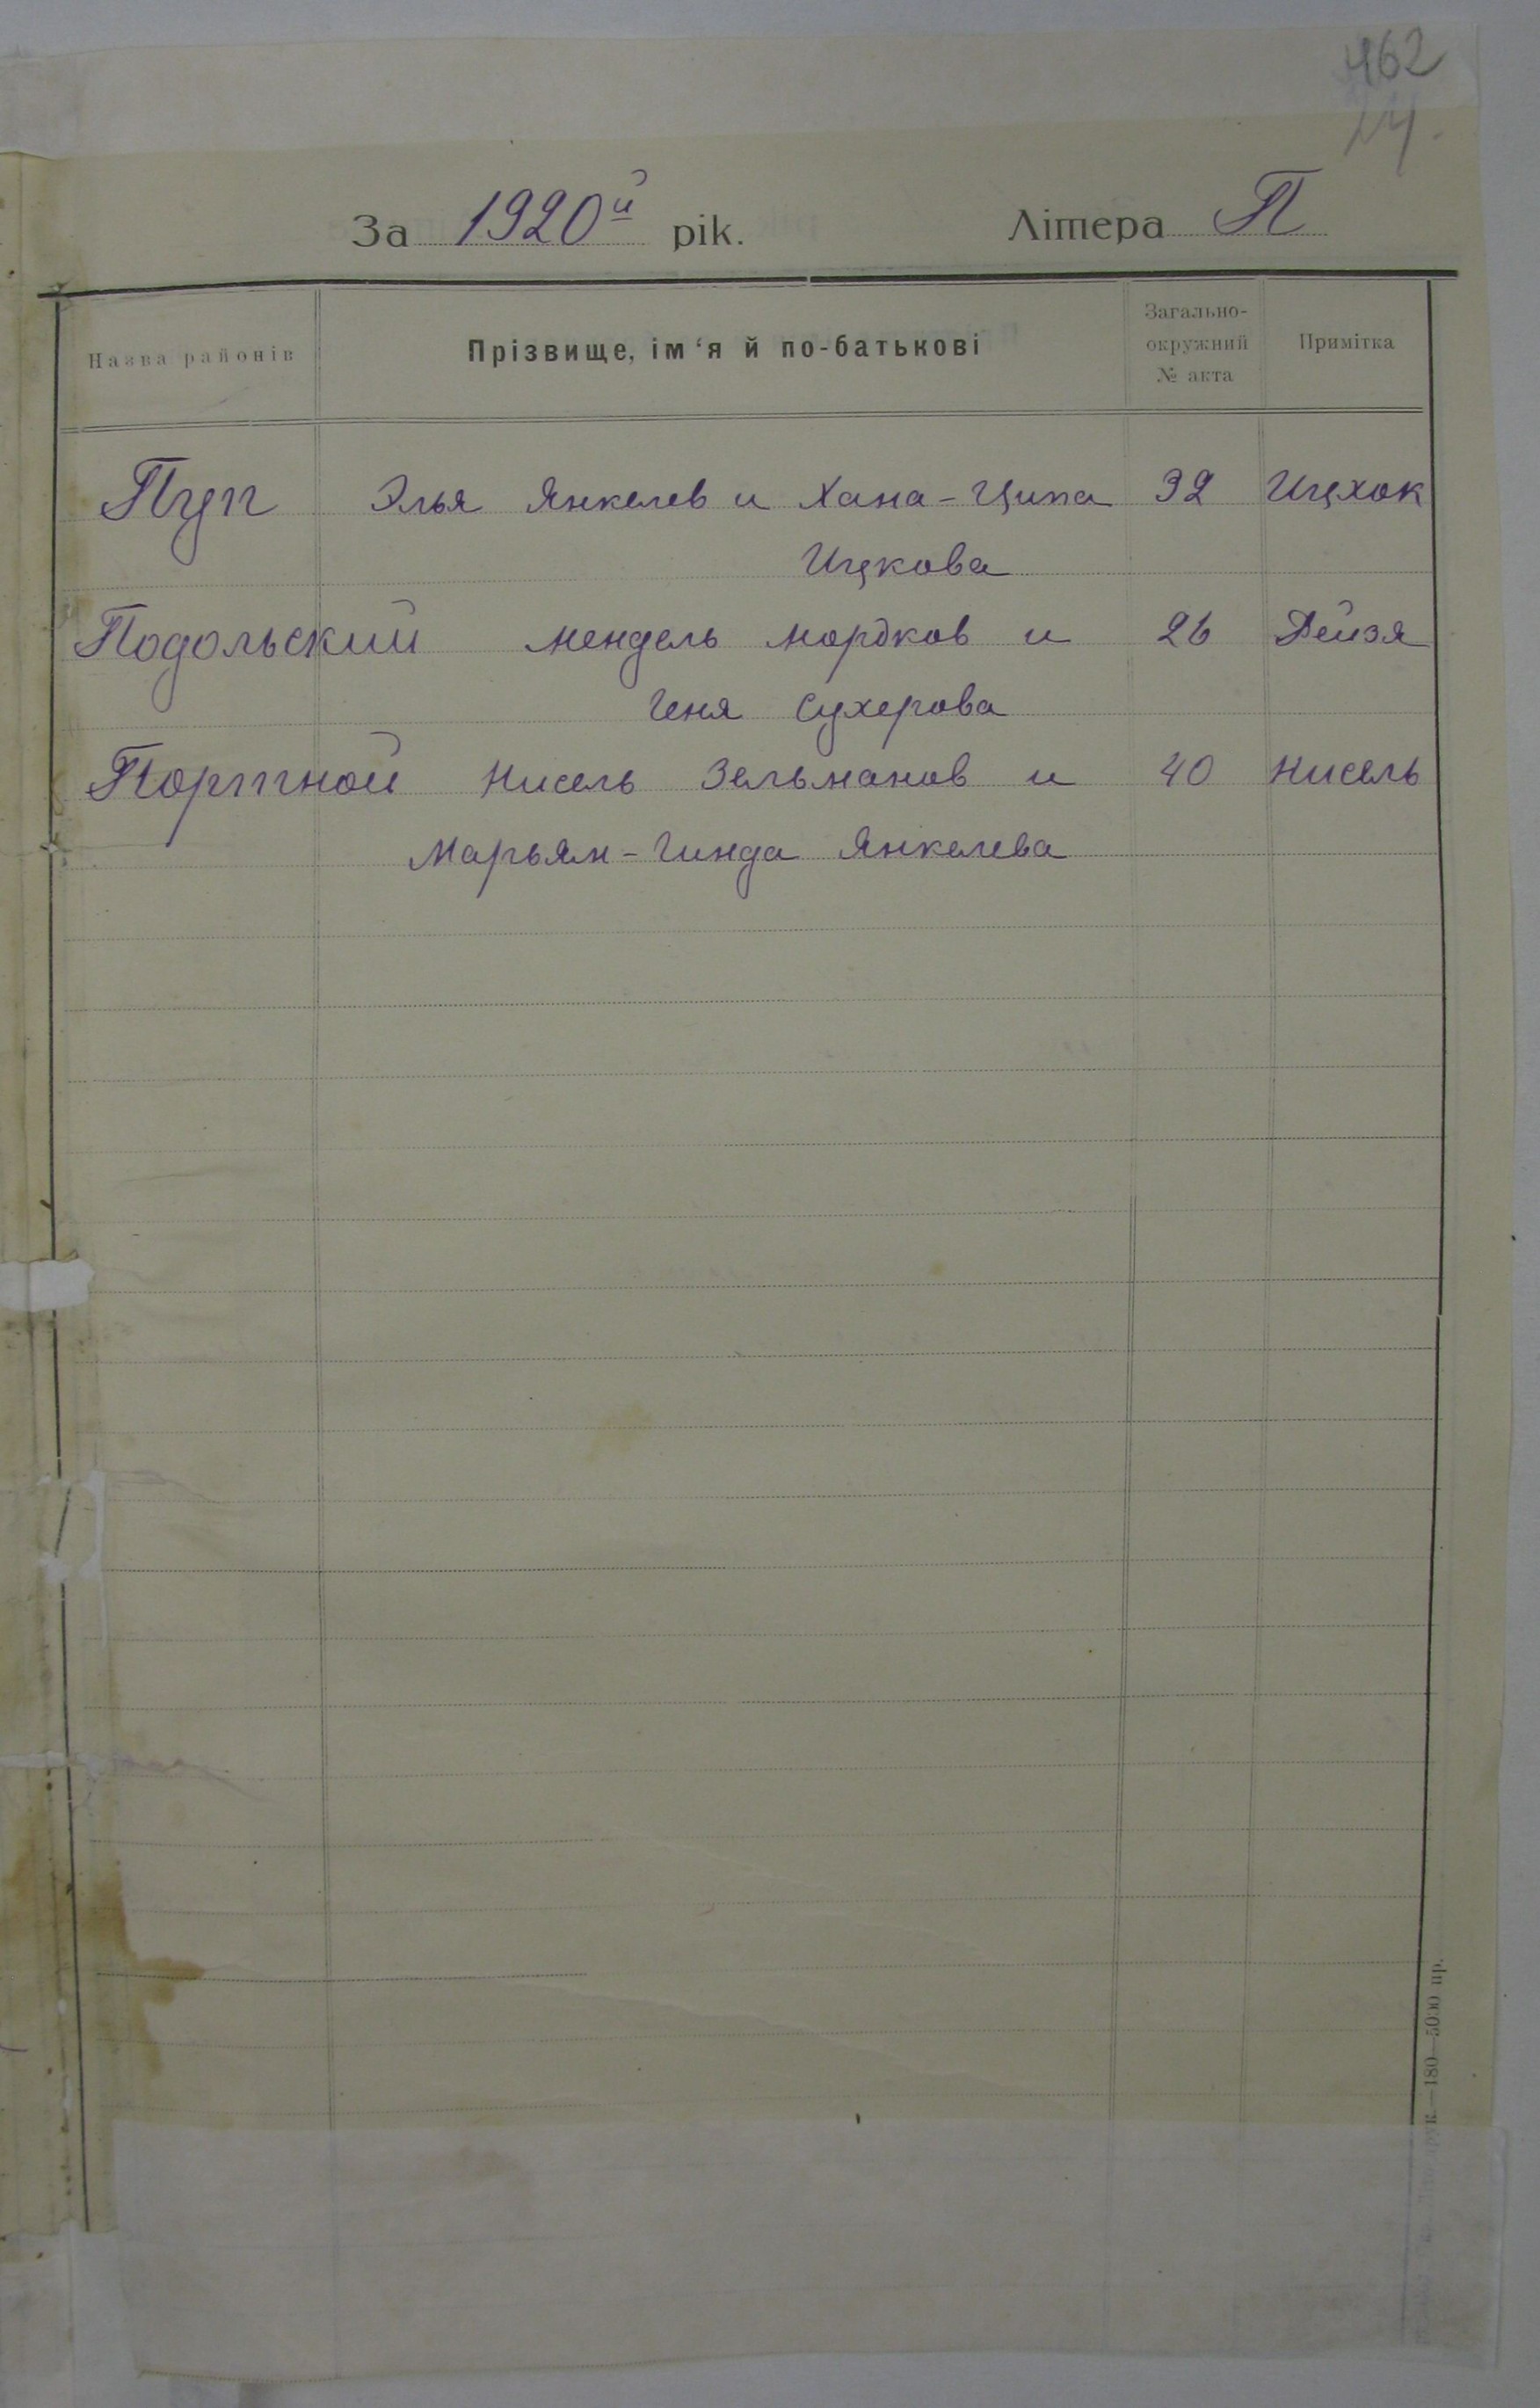 462
24.
За 1920й рік. Літера П
Назва районів Прізвище, ім'я й по-батькові Загально-окружний № акта Примітка
Пуп Элья Янкелев и Хана-Ципа 32 Ицхок
Ицкова
Подольский Мендель Мордков и 26 Пейзя
Геня Сухерова
Портной Нисель Зельманов и 40 Нисель
Марьям-Гинда Янкелева
180—5000 пр.